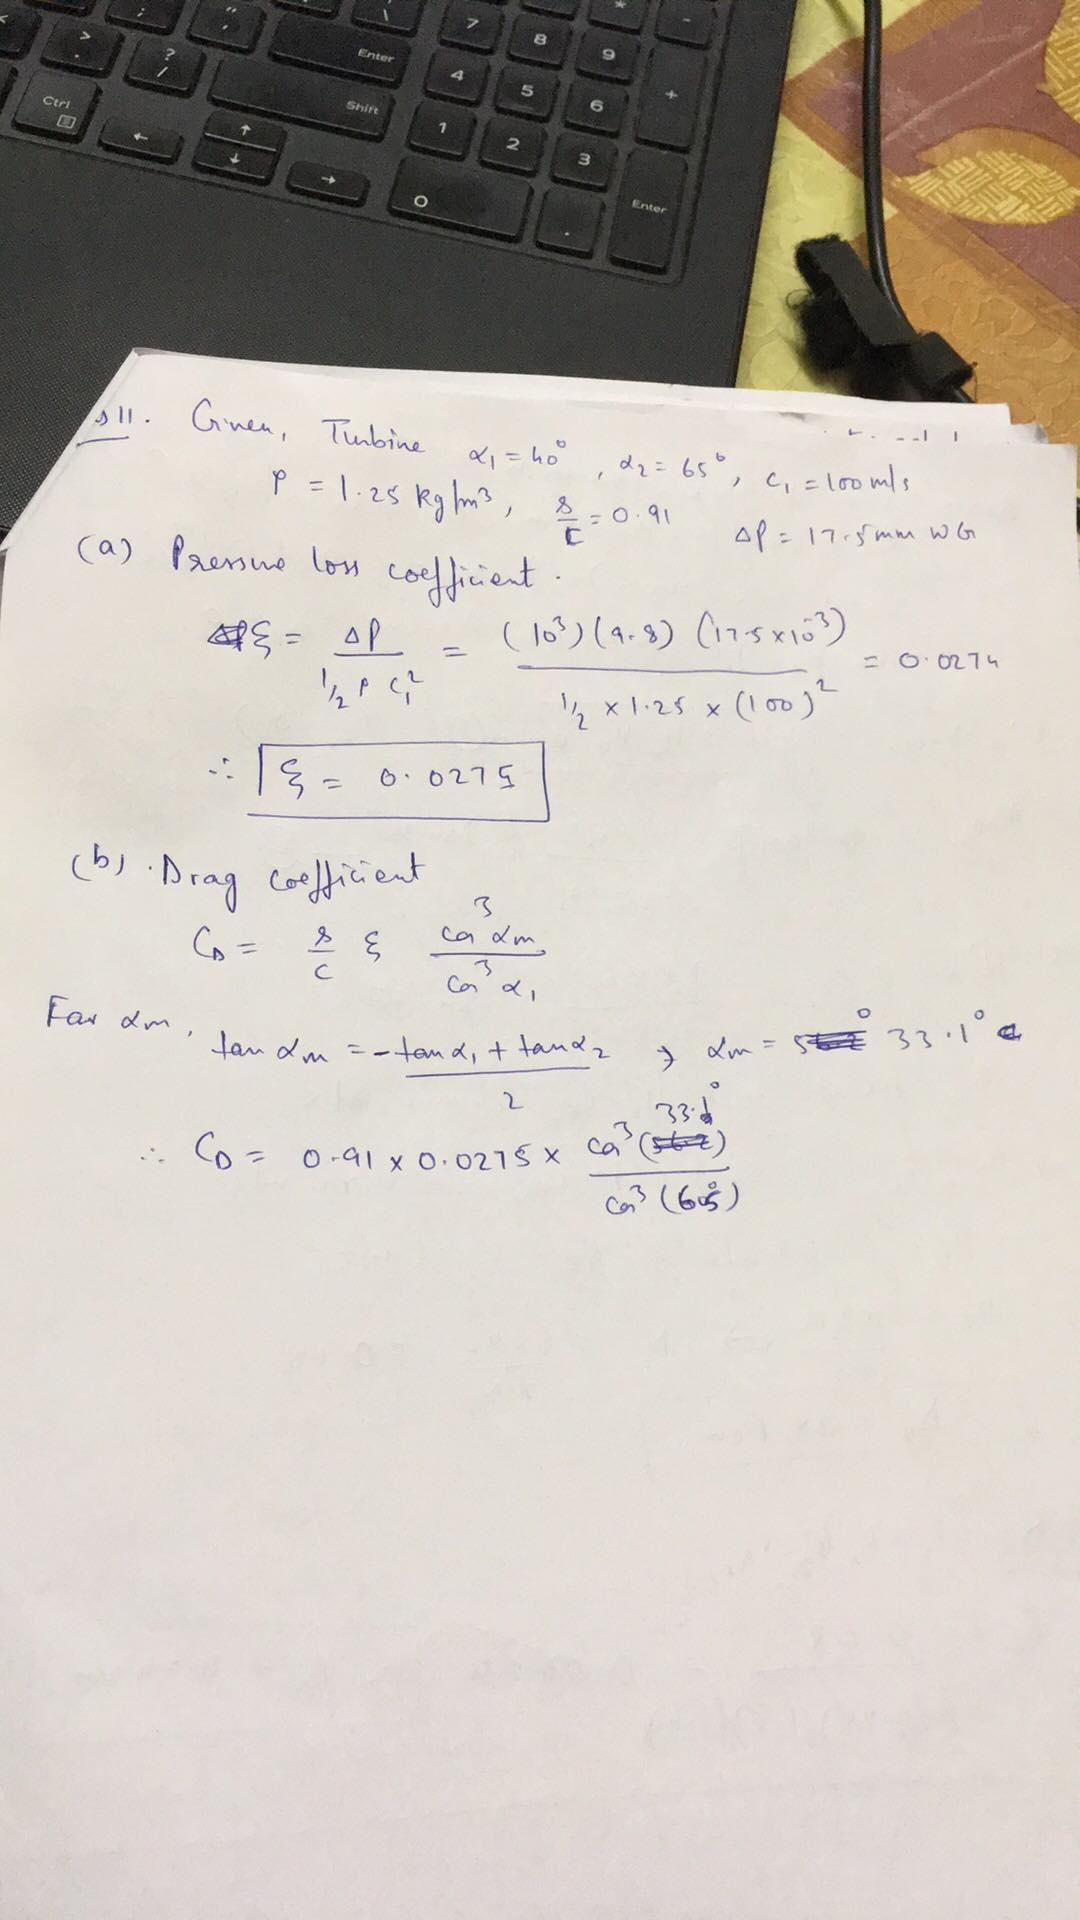 7
8
9
4
5
6
+
1
2
3
0
.
Enter
Enter
Shift
Ctrl
>
.
?
/
←
↑
↓
→
\
;
*
-
11. Given, Turbine α₁ = 40°, α₂ = 65°, c₁ = 100 m/s
ρ = 1.25 kg/m³, s/c = 0.91 ΔP = 17.5 mm WG
(a) Pressure loss coefficient.
ξ = ΔP / ½ ρ c₁² = (10³)(9.8)(17.5×10⁻³) / ½ × 1.25 × (100)² = 0.0274
∴ ξ = 0.0275
(b) . Drag coefficient
C_D = s/c ξ cos³ αm / cos³ α₁
For αm, tan αm = - tan α₁ + tan α₂ / 2 , αm = 33.1°
∴ C_D = 0.91 × 0.0275 × cos³ (33.1°) / cos³ (65°)